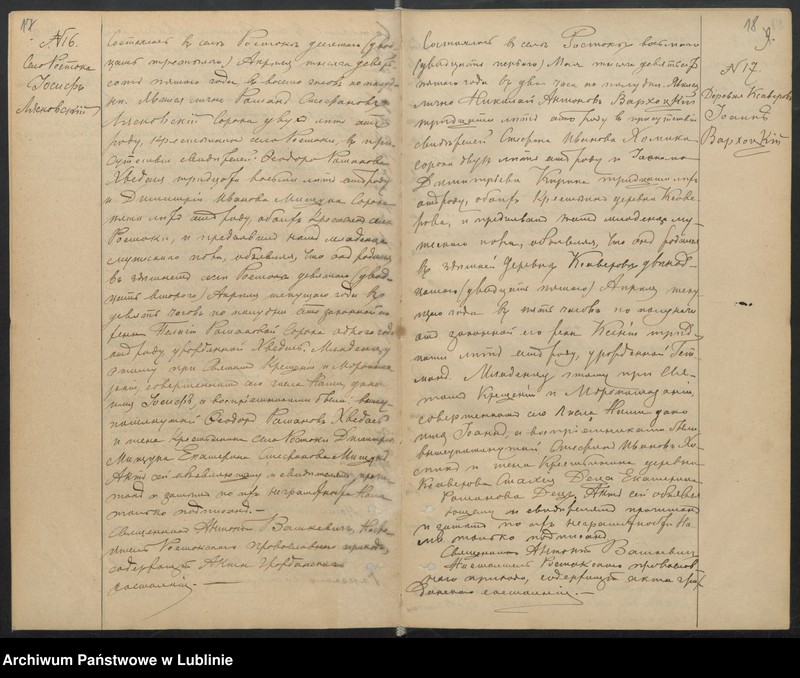 18
№ 16.
Село Ростока
Іосифъ
Лясковскій
Состоялось въ селѣ Ростокѣ десятаго (двад-
цать третьяго) Апрѣля тысяча девять-
сотъ пятаго года въ восемь часовъ по полуд-
ни. Явился лично Романъ Стефановъ
Лясковскій сорока двухъ лѣтъ отъ
роду, крестьянинъ села Ростоки, въ при-
сутствіи свидѣтелей Ѳеодора Романова
Хведась тридцати восьми лѣтъ отъ роду
и Димитрія Иванова Мищука сорока
лѣтъ отъ роду, обоихъ крестьянъ села
Ростоки, и предъявилъ намъ младенца
мужескаго пола, объявляя, что онъ родился
въ здѣшнемъ селѣ Ростокѣ девятаго (двад-
цать второго) Апрѣля текущаго года въ
девять часовъ по полудни отъ законной его
жены Романовой сорока одного года
отъ роду, урожденной Хведась. Младенцу
этому при Святомъ Крещеніи и Мѵропома-
заніи, совершенномъ сего числа Нами, дано
имя Іосифъ, а воспріемниками были: выше-
помянутый Ѳеодоръ Романовъ Хведась
и жена крестьянина села Ростоки Димитрія
Мищука Екатерина Стефанова Мищукъ
Актъ сей объявляющему и свидѣтелямъ прочи-
танъ и затѣмъ по ихъ неграмотности Нами
только подписанъ. —
Священникъ Антоній Вашкевичъ, Насто-
ятель Ростокскаго православнаго прихода,
содержащій Акты Гражданскаго
состоянія. —
18
9.
№ 17.
Деревня Ксаверовъ
Іоаннъ
Вархоцкій
Состоялось въ селѣ Ростокѣ восьмого
(двадцать перваго) Мая тысяча девятьсотъ
пятаго года въ два часа по полудни. Явился
лично Николай Антоновъ Вархоцкій
тридцати лѣтъ отъ роду въ присутствіи
свидѣтелей Стефана Иванова Хомика
сорока двухъ лѣтъ отъ роду и
Димитріева тридцати лѣтъ
отъ роду, обоихъ крестьянъ деревни Ксаве-
рова, и предъявилъ намъ младенца му-
жескаго пола, объявляя, что онъ родился
въ здѣшней деревнѣ Ксаверовъ двѣнад-
цатаго (двадцать пятаго) Апрѣля теку-
щаго года въ пять часовъ по полуночи
отъ законной его жены Ксеніи трид-
цати лѣтъ отъ роду, урожденной
Младенцу этому при Свя-
томъ Крещеніи и Мѵропомазаніи,
совершенномъ сего числа Нами дано
имя Іоаннъ, а воспріемниками были
вышеупомянутый Стефанъ Ивановъ Хо-
микъ и жена крестьянина деревни
Ксаверова Екатерина
Романова Актъ сей объявля-
ющему и свидѣтелямъ прочитанъ
и затѣмъ по ихъ неграмотности На-
ми только подписанъ
Священникъ Антоній Вашкевичъ
Настоятель Ростокскаго православ-
наго прихода, содержащій акты граж-
данскаго состоянія. —
Archiwum Państwowe w Lublinie